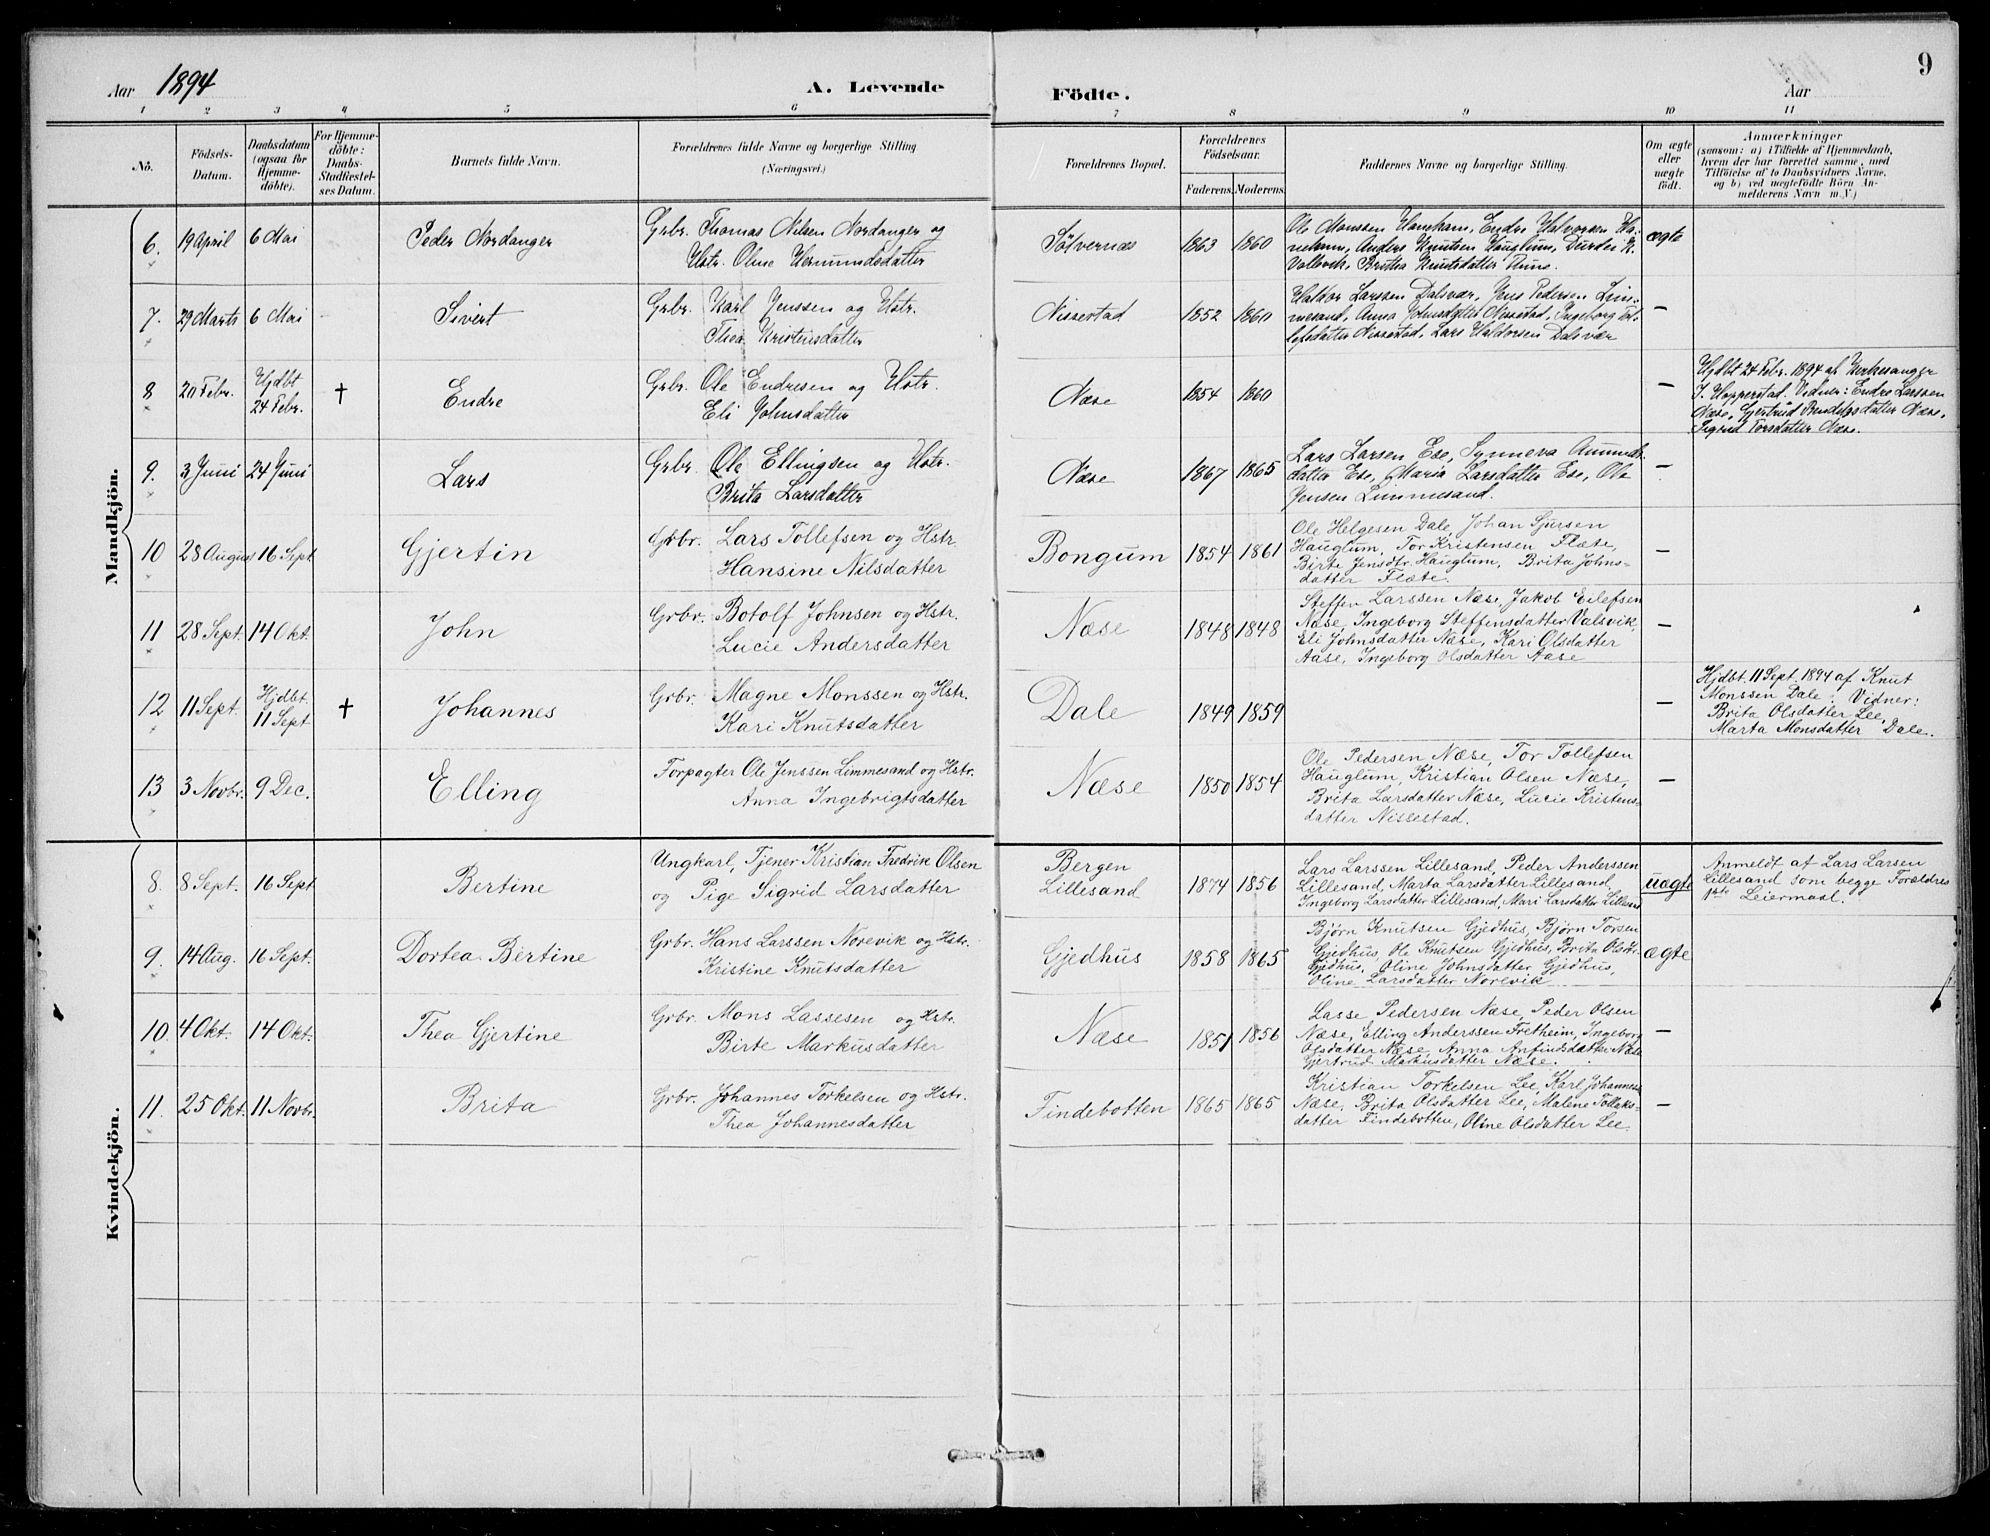 9
Aar 1894
A. Levende
Födte.
Aar
1 2 3 4 5 6 7 8 9 10 11
No.
Födsels-Datum.
Daabsdatum (ogsaa for Hjemme-döbte).
For Hjemme-döbte: Daabs-Stadfæstel-ses Datum.
Barnets fulde Navn.
Forældrenes fulde Navne og borgerlige Stilling
(Næringsvei.)
Forældrenes Bopæl.
Forældrenes Födselsaar.
Faderens. Moderens.
Faddernes Navne og borgerlige Stilling.
Om ægte eller uægte födt.
Anmærkninger
(saasom: a) i Tilfælde af Hjemmedaab,
hvem der har forrettet samme, med
Tilföielse af to Daabsvidners Navne,
og b) ved uægtefödte Börn An-
melderens Navn m. V.)
Mandkjön.
6. 19 April 6 Mai Peder Nordanger
Grbr. Thomas Nilsen Nordanger og
Hstr. Oline Hermundsdatter
Sölvernæs 1863 1860
Ole Monssen Hanekam, Endre Halvorsen Ha-
nekam, Anders Knutsen Hauglum, Durdei K.
Vallevik, Britha Knutsdatter
ægte
7. 29 Marts 6 Mai Sivert
Grbr. Karl Jenssen og Hstr.
Thea Kristensdatter
Nissestad 1852 1860
Haldor Larssen Dalsvær, Jens Pedersen Lim-
mesand, Anna Johnsdatter Nissestad, Ingeborg Tol-
lefsdatter Nissestad, Lars Haldorsen Dalsvær
—
8 20 Febr. Hjdbt 24 Febr. † Endre
Grbr. Ole Endresen og Hstr.
Eli Johnsdatter
Næse 1854 1860
—
Hjdbt 24 Febr. 1894 af Kirkesanger
J. Hopperstad. Vidner: Endre Larssen
Næse, Gjertrud Bendiksdatter Næse,
Sigrid Torsdatter Næse.
9. 3 Juni 24 Juni Lars
Grbr. Ole Ellingsen og Hstr.
Brita Larsdatter
Næse 1867 1865
Lars Larsen Ese, Synneva Aamunds-
datter Ese, Maria Larsdatter Ese, Ole
Jensen Limmesand.
—
10 28 August 16 Sept. Gjertin
Grbr. Lars Tollefsen og Hstr.
Hansine Nilsdatter
Bongum 1854 1861
Ole Helgesen Dale, Johan Sjursen
Hauglum, Tor Kristensen Flæte,
Birte Jensdtr. Hauglum, Brita Johns-
datter Flæte.
—
11 28 Sept. 14 Okt. John
Grbr. Botolf Johnsen og Hstr.
Lucie Andersdatter
Næse 1848 1848
Steffen Larssen Næse, Jakob Eilefsen
Næse, Ingeborg Steffensdatter Valsvik,
Eli Johnsdatter Næse, Kari Olsdatter
Aase, Ingeborg Olsdatter Aase
—
12 11 Sept. Hjdbt. 11 Sept † Johannes
Grbr. Magne Monssen og Hstr.
Kari Knutsdatter
Dale 1849 1859
—
Hjdbt. 11 Sept. 1894 af Knut
Monssen Dale, Vidner:
Brita Olsdatter Lee,
Marta Monsdatter Dale.
13 3 Novbr. 9 Dec. Elling
Forpagter Ole Jenssen Limmesand og Hstr.
Anna Ingebrigtsdatter
Næse 1850 1854
Ole Pedersen Næse, Tor Tollefsen
Hauglum, Kristian Olsen Næse,
Brita Larsdatter Næse, Lucie Kristens-
datter Nissestad.
—
Kvindekjön.
8. 8 Sept. 16 Sept Bertine
Ungkarl, Tjener Kristian Fredrik Olsen
og Pige Sigrid Larsdatter
Bergen
Lillesand 1874 1856
Lars Larssen Lillesand, Peder Anderssen
Lillesand, Marta Larsdatter Lillesand,
Ingeborg Larsdatter Lillesand, Mari Larsdatter Lillesand
uægte
Anmeldt af Lars Larsen
Lillesand som begge Forældres
1ste Leiermaal.
9. 14 Aug. 16 Sept. Dortea Bertine
Grbr. Hans Larssen Norevik og Hstr.
Kristine Knutsdatter
Gjedhus 1858 1865
Bjørn Knutsen Gjedhus, Bjørn Torsen
Gjedhus, Ole Knutsen Gjedhus, Brita Olsdtr.
Gjedhus, Oline Johnsdatter Gjedhus,
Oline Larsdatter Norevik
ægte
10. 4 Okt. 14 Okt. Thea Gjertine
Grbr. Mons Lassesen og Hstr.
Birte Markusdatter
Næse 1851 1856
Lasse Pedersen Næse, Peder Olsen
Næse, Elling Anderssen Fretheim, Ingeborg
Olsdatter Næse, Anna Anfindsdatter Næse
Gjertrud Markusdatter Næse.
—
11. 25 Okt. 11 Novbr. Brita
Grbr. Johannes Torkelsen og Hstr.
Thea Johannesdatter
Findebotten 1865 1865
Kristian Torkelsen Lee, Karl Johannes.
Næse, Brita Olsdatter Lee, Malene Tollaks-
datter Findebotten, Oline Olsdatter Lee.
—